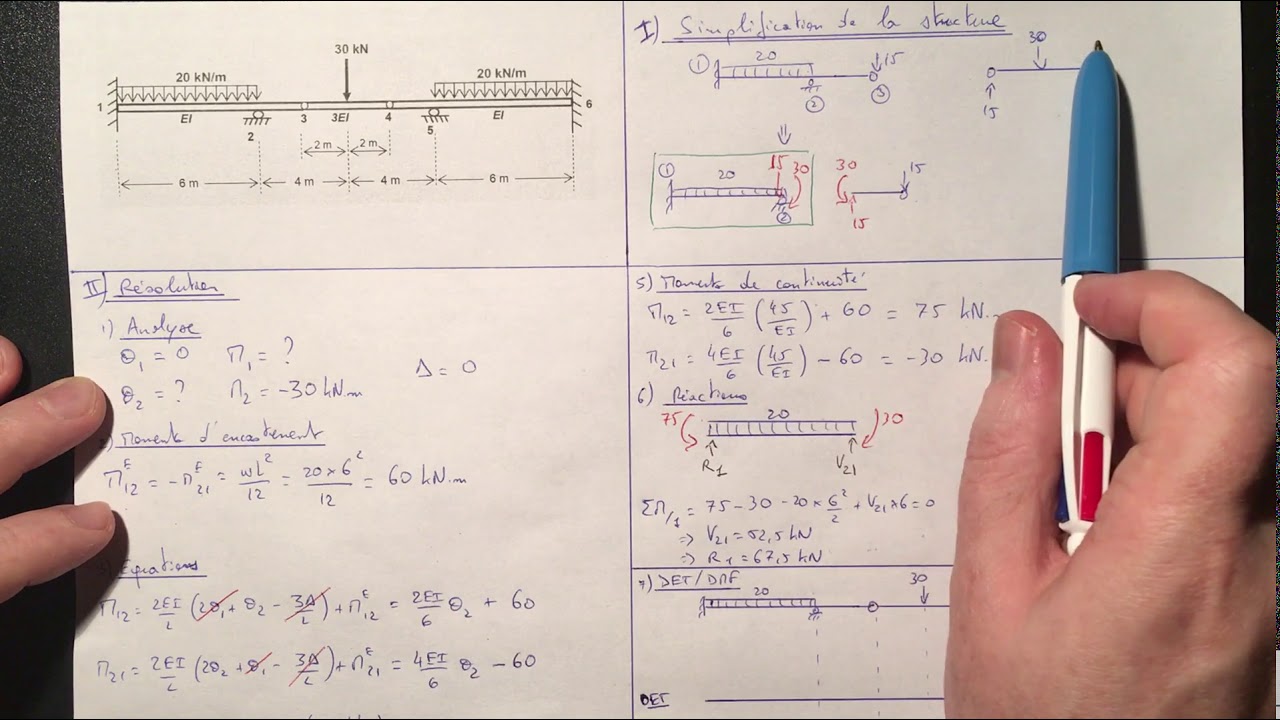 30 kN
20 kN/m
20 kN/m
1
EI
2
3
3EI
4
5
EI
6
2 m
2 m
6 m
4 m
4 m
6 m
I) Simplification de la structure
① 20 15
② ③
30
15
① 20 15 30
②
30 15
15
II) Résolution
1) Analyse
θ₁ = 0 M₁ = ?
Δ = 0
θ₂ = ? M₂ = -30 kN.m
Moments d'encastrement
M₁₂ᴱ = -M₂₁ᴱ = wL²/12 = 20×6²/12 = 60 kN.m
Equations
M₁₂ = 2EI/L (2θ₁ + θ₂ - 3Δ/L) + M₁₂ᴱ = 2EI/6 θ₂ + 60
M₂₁ = 2EI/L (2θ₂ + θ₁ - 3Δ/L) + M₂₁ᴱ = 4EI/6 θ₂ - 60
5) Moments de continuité
M₁₂ = 2EI/6 (45/EI) + 60 = 75 kN.m
M₂₁ = 4EI/6 (45/EI) - 60 = -30 kN.
6) Réactions
75 20 30
R₁ V₂₁
ΣM/₁ = 75 - 30 - 20×6²/2 + V₂₁×6 = 0
⇒ V₂₁ = 52,5 kN
⇒ R₁ = 67,5 kN
7) DET/DMF
20 30
DET